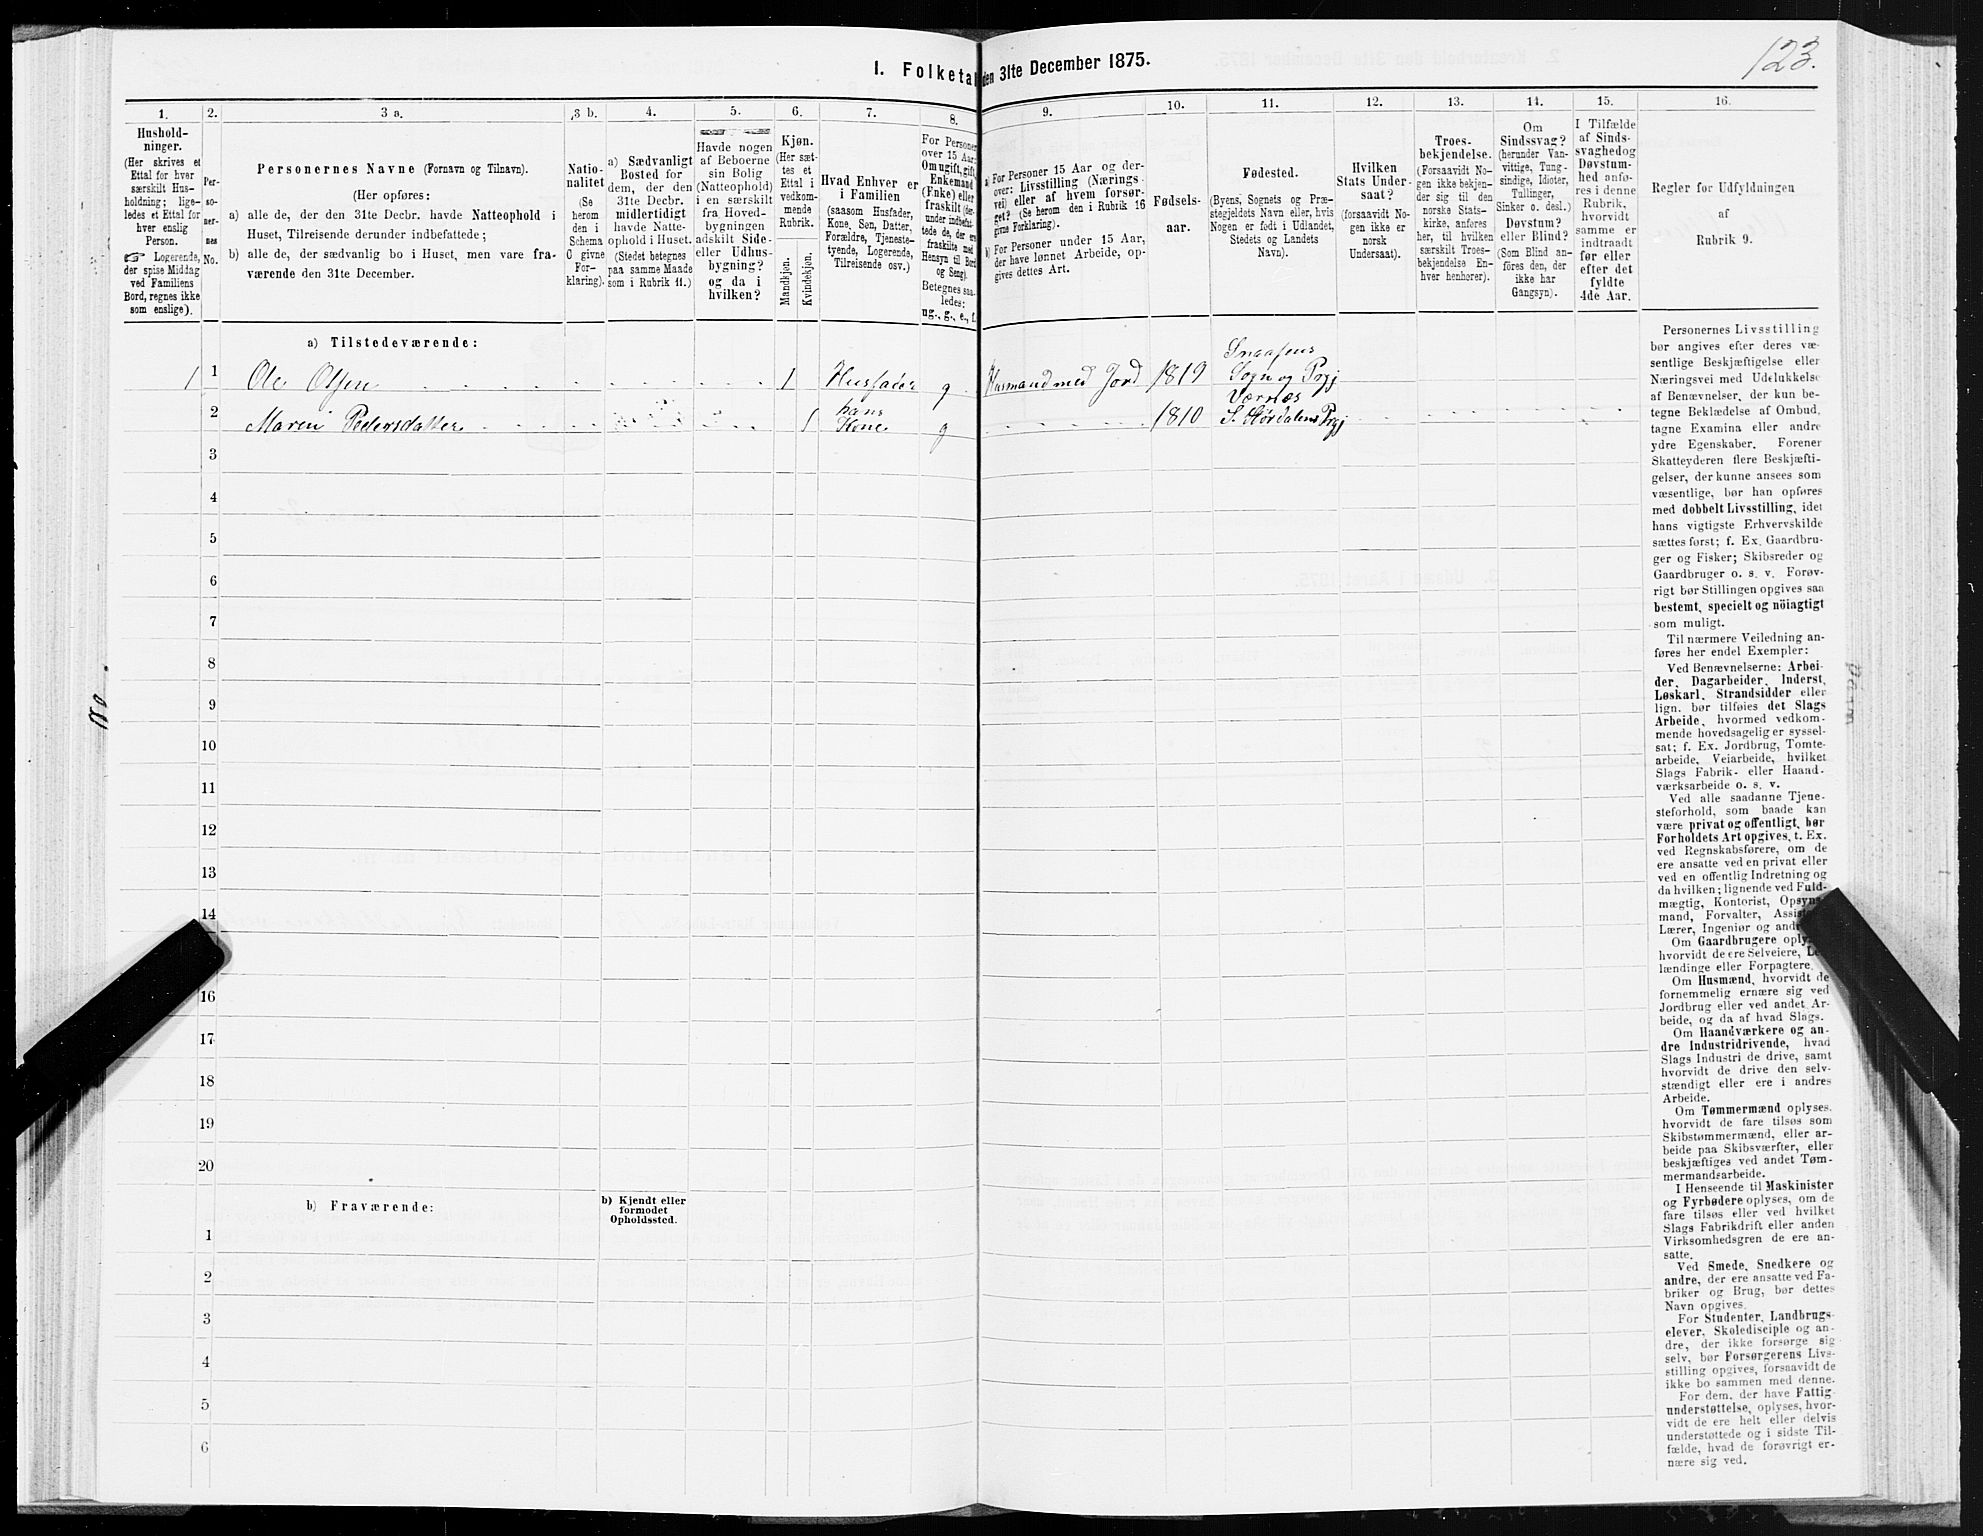 123.
I. Folketal den 31te December 1875.
1. 2. 3 a. 3 b. 4. 5. 6. 7. 8. 9. 10. 11. 12. 13. 14. 15. 16.
Hushold-
ninger.
(Her skrives et
Ettal for hver
særskilt Hus-
holdning; lige-
ledes et Ettal for
hver enslig
Person.
☞ Logerende,
der spise Middag
ved Familiens
Bord, regnes ikke
som enslige).
Per-
so-
ner-
nes
No.
Personernes Navne (Fornavn og Tilnavn).
(Her opføres:
a) alle de, der den 31te Decbr. havde Natteophold i
Huset, Tilreisende derunder indbefattede;
b) alle de, der sædvanlig bo i Huset, men vare fra-
værende den 31te December.
Natio-
nalitet
(Se
herom
den i
Schema
O givne
For-
klaring).
a) Sædvanligt
Bosted for
dem, der den
31te Decbr.
midlertidigt
havde Natte-
ophold i Huset.
(Stedet betegnes
paa samme Maade
som i Rubrik 11.)
Havde nogen
af Beboerne
sin Bolig
(Natteophold)
i en særskilt
fra Hoved-
bygningen
adskilt Side-
eller Udhus-
bygning?
og da i
hvilken?
Kjøn.
(Her sæt-
tes et
Ettal i
vedkom-
mende
Rubrik.
Mandkjøn.
Kvindekjøn.
Hvad Enhver er
i Familien
(saasom Husfader,
Kone, Søn, Datter,
Forældre, Tjeneste-
tyende, Logerende,
Tilreisende osv.)
For Personer
over 15 Aar:
Om ugift, gift,
Enkemand
(Enke) eller
fraskilt (der-
under indbefat-
tede de, der ere
fraskilte med
Hensyn til Bord
og Seng).
Betegnes saa-
ledes:
ug., g., e., f.
a) For Personer 15 Aar og der-
over: Livsstilling (Nærings-
vei) eller af hvem forsør-
get? (Se herom den i Rubrik 16
givne Forklaring).
b) For Personer under 15 Aar,
der have lønnet Arbeide, op-
gives dettes Art.
Fødsels-
aar.
Fødested.
(Byens, Sognets og Præ-
stegjeldets Navn eller, hvis
Nogen er født i Udlandet,
Stedets og Landets
Navn).
Hvilken
Stats Under-
saat?
(forsaavidt No-
gen ikke er
norsk
Undersaat).
Troes-
bekjendelse.
(Forsaavidt No-
gen ikke bekjen-
der sig til den
norske Stats-
kirke, anføres
her, til hvilken
særskilt Troes-
bekjendelse En-
hver henhører).
Om
Sindssvag?
(herunder Van-
vittige, Tung-
sindige, Idioter,
Tullinger,
Sinker o. desl.)
Døvstum?
eller Blind?
(Som Blind an-
føres den, der
ikke har
Gangsyn).
I Tilfælde
af Sinds-
svaghed og
Døvstum-
hed anfø-
res i denne
Rubrik,
hvorvidt
samme er
indtraadt
før eller
efter det
fyldte
4de Aar.
Regler for Udfyldningen
af
Rubrik 9.
a) Tilstedeværende:
1 1 Ole Olsen 1 Husfader g Husmand med Jord 1819 Snaasens
Sogn og Prgj
2 Maren Pedersdatter 1 hans
Kone g 1810 Værnæs
S. Stördalens Prgj
3
4
5
6
7
8
9
10
11
12
13
14
16
17
18
19
20
b) Fraværende:
b) Kjendt eller
formodet
Opholdssted.
1
2
3
4
5
6
Personernes Livsstilling
bør angives efter deres væ-
sentlige Beskjæftigelse eller
Næringsvei med Udelukkelse
af Benævnelser, der kun be-
tegne Beklædelse af Ombud,
tagne Examina eller andre
ydre Egenskaber. Forener
Skatteyderen flere Beskjæfti-
gelser, der kunne ansees som
væsentlige, bør han opføres
med dobbelt Livsstilling, idet
hans vigtigste Erhvervskilde
sættes først; f. Ex. Gaardbru-
ger og Fisker; Skibsreder og
Gaardbruger o. s. v. Forøv-
rigt bør Stillingen opgives saa
bestemt, specielt og nöiagtigt
som muligt.
Til nærmere Veiledning an-
føres her endel Exempler:
Ved Benævnelserne: Arbei-
der, Dagarbeider, Inderst,
Løskarl, Strandsidder eller
lign. bør tilføies det Slags
Arbeide, hvormed vedkom-
mende hovedsagelig er syssel-
sat; f. Ex. Jordbrug, Tomte-
arbeide, Veiarbeide, hvilket
Slags Fabrik- eller Haand-
værksarbeide o. s. v.
Ved alle saadanne Tjene-
steforhold, som baade kan
være privat og offentligt, bør
Forholdets Art opgives, t. Ex.
ved Regnskabsførere, om de
ere ansatte ved en privat eller
ved en offentlig Indretning og
da hvilken; lignende ved Fuld-
mægtig, Kontorist, Opsyns-
mand, Forvalter, Assis
Lærer, Ingeniør og and
Om Gaardbrugere oply
hvorvidt de ere Selveiere, Le
lændinge eller Forpagtere.
Om Husmænd, hvorvidt de
fornemmelig ernære sig ved
Jordbrug eller ved andet Ar-
beide, og da af hvad Slags.
Om Haandværkere og an-
dre Industridrivende, hvad
Slags Industri de drive, samt
hvorvidt de drive den selv-
stændigt eller ere i andres
Arbeide.
Om Tømmermænd oplyses,
hvorvidt de fare tilsøs som
Skibstømmermænd, eller ar-
beide paa Skibsværfter, eller
beskjæftiges ved andet Tøm-
mermandsarbeide.
I Henseende til Maskinister
og Fyrbødere oplyses, om de
fare tilsøs eller ved hvilket
Slags Fabrikdrift eller anden
Virksomhedsgren de ere an-
satte.
Ved Smede, Snedkere og
andre, der ere ansatte ved Fa-
briker og Brug, bør dettes
Navn opgives.
For Studenter, Landbrugs-
elever, Skoledisciple og an-
dre, der ikke forsørge sig
selv, bør Forsørgerens Livs-
stilling opgives, forsaavidt de
ikke bo sammen med denne.
For dem, der have Fattig-
understøttelse, oplyses, hvor-
vidt de ere helt eller delvis
understøttede og i sidste Til-
fælde, hvad de forøvrigt er-
nære sig ved.